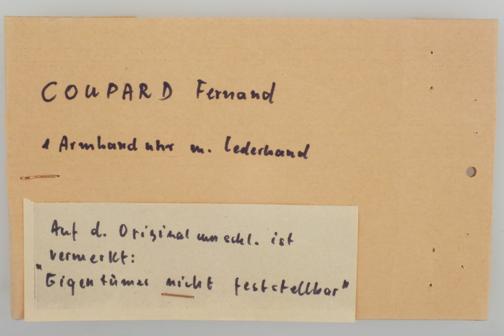 COUPARD Fernand
1 Armbanduhr m. Lederband
Auf d. Originalumschl. ist
vermerkt:
"Eigentümer nicht feststellbar"